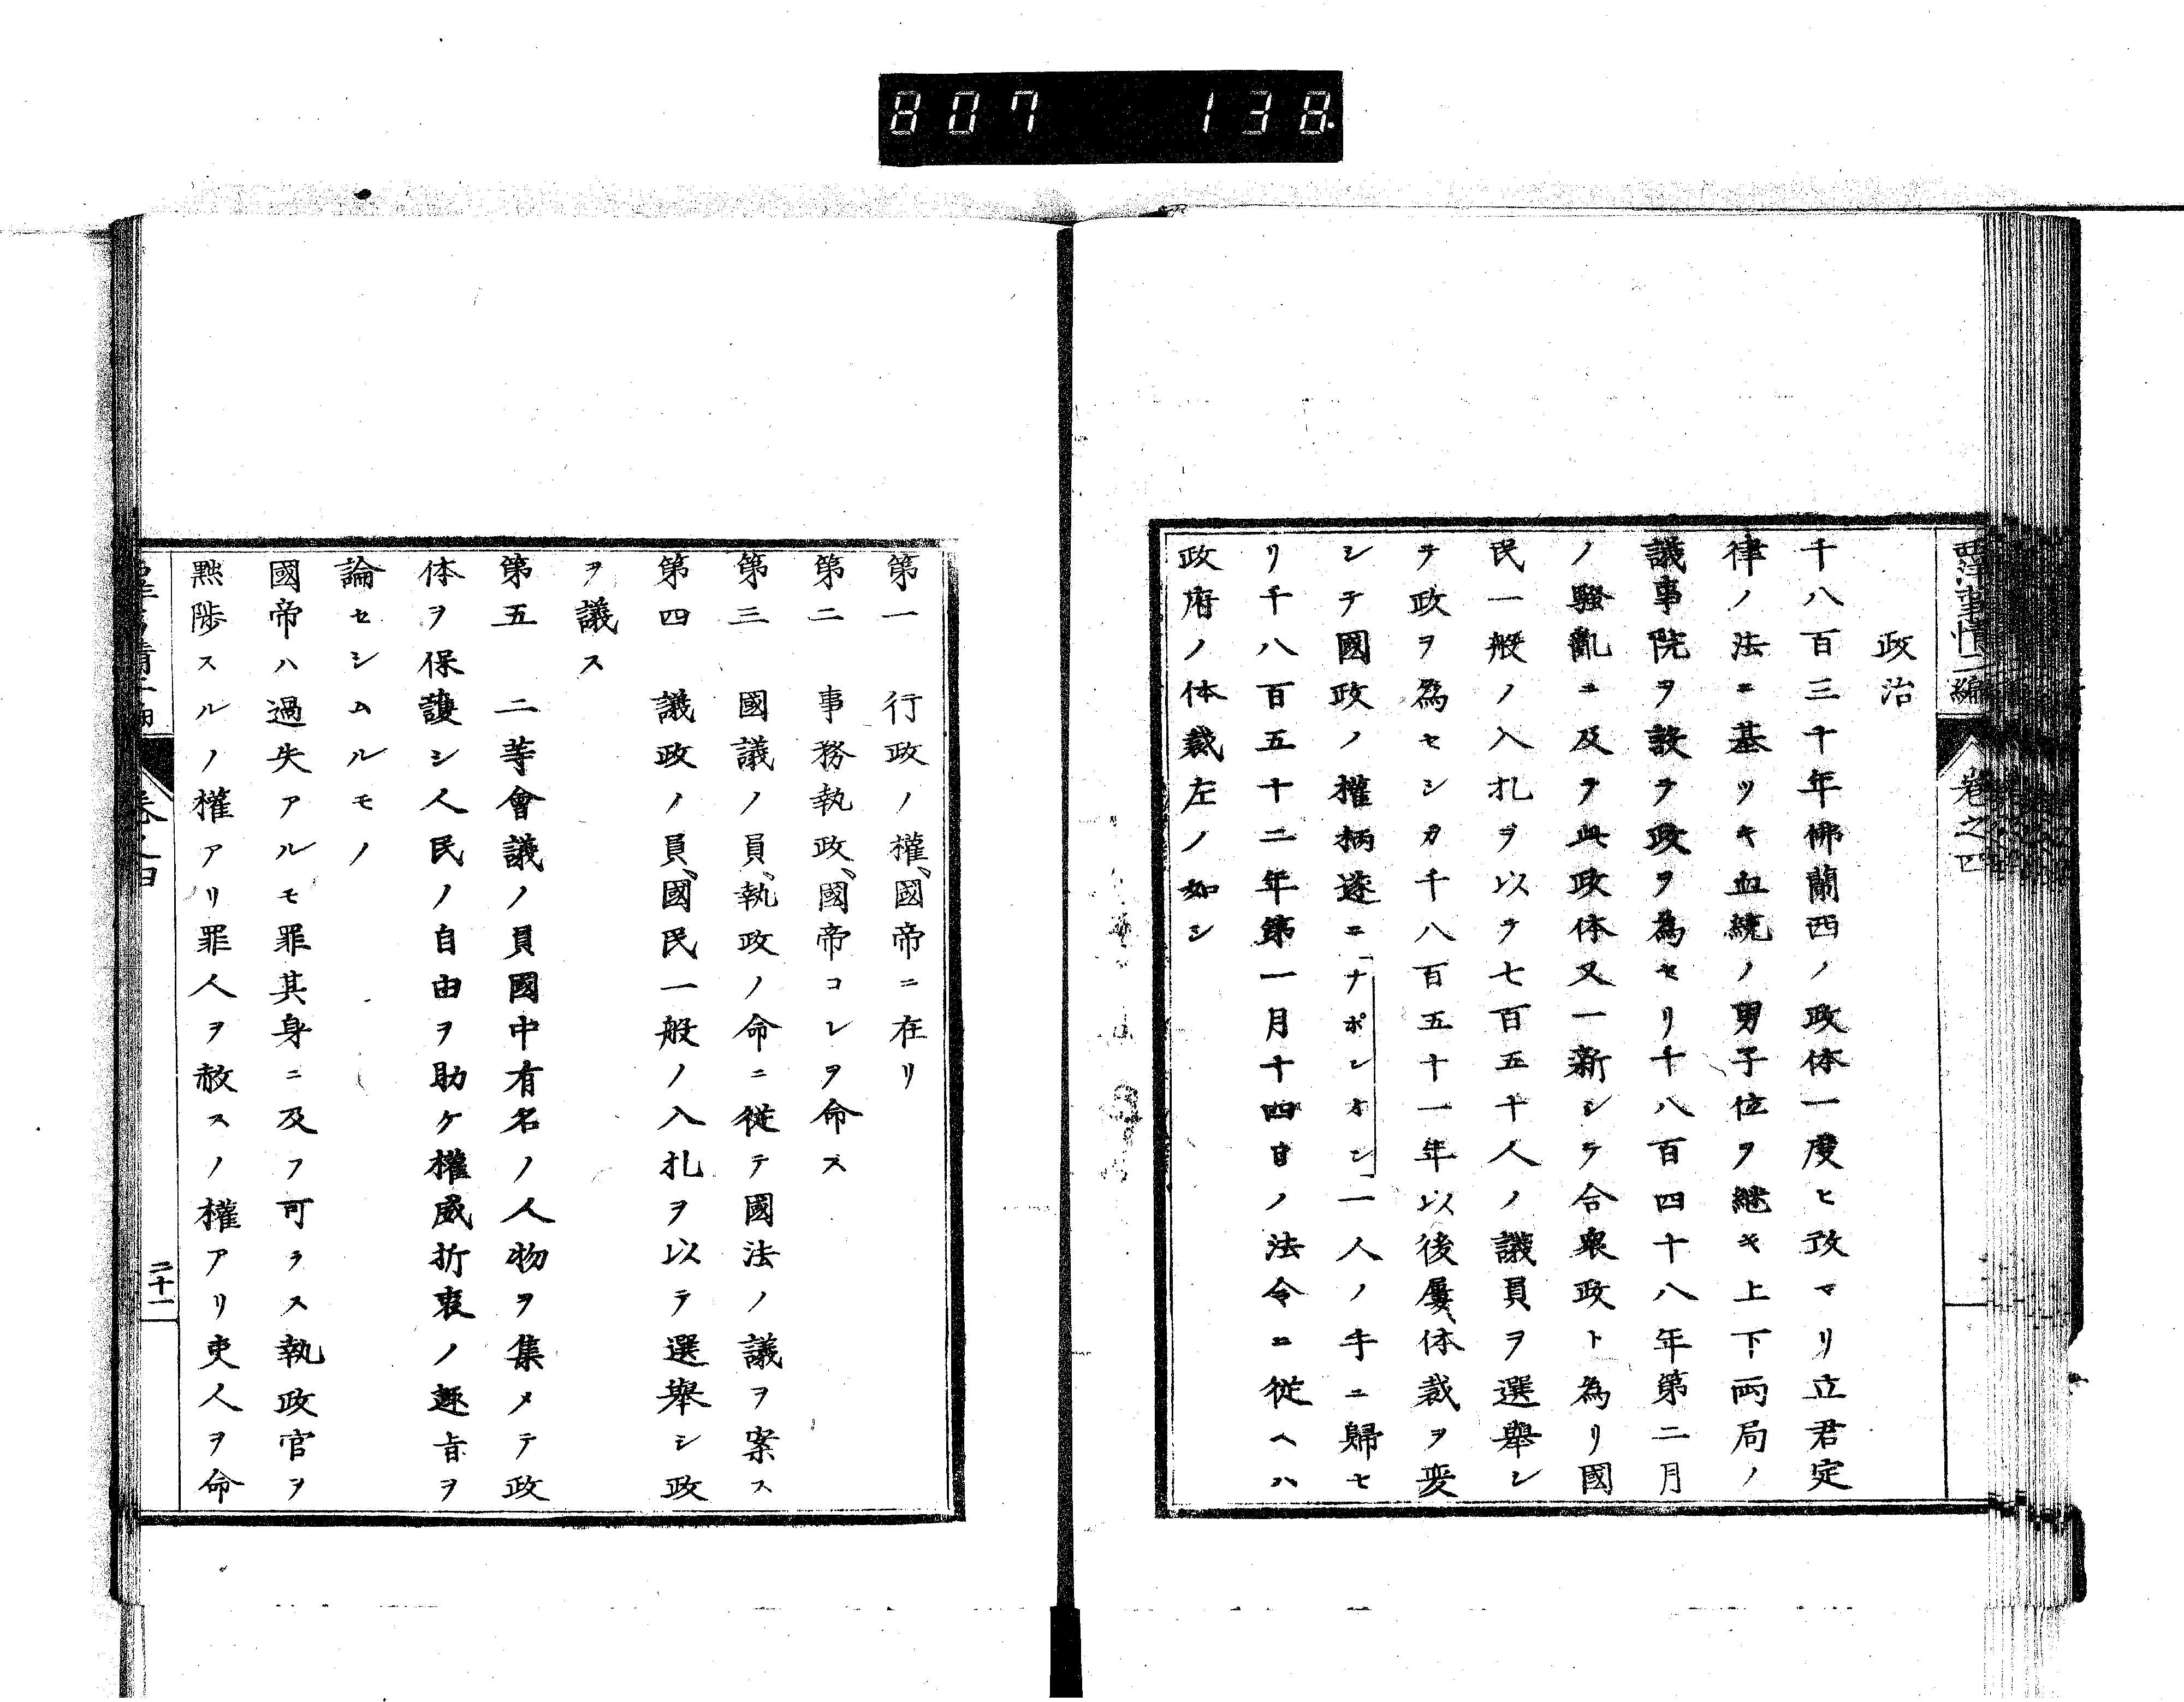 807 138
西洋事情二編 卷之四
政治
千八百三十年佛蘭西ノ政体一度ヒ改マリ立君定
律ノ法ニ基ツキ血統ノ男子位ヲ継キ上下両局ノ
議事院ヲ設ヲ政ヲ為セリ千八百四十八年第二月
ノ騷亂ニ及ヲ此政体又一新シテ合衆政ト為リ國
民一般ノ入札ヲ以ヲ七百五十人ノ議員ヲ選舉シ
テ政ヲ為セシカ千八百五十一年以後屢〻体裁ヲ変
シテ國政ノ權柄遂ニ「ナポレオン」一人ノ手ニ歸セ
リ千八百五十二年第一月十四日ノ法令ニ從ヘハ
政府ノ体裁左ノ如シ
第一 行政ノ權、國帝ニ在リ
第二 事務執政、國帝コレヲ命ス
第三 國議ノ員、執政ノ命ニ從テ國法ノ議ヲ案ス
第四 議政ノ員、國民一般ノ入札ヲ以テ選舉シ政
ヲ議ス
第五 二等會議ノ員國中有名ノ人物ヲ集メテ政
体ヲ保護シ人民ノ自由ヲ助ケ權威折衷ノ趣旨ヲ
論セシムルモノ
國帝ハ過失アルモ罪其身ニ及フ可ラス執政官ヲ
黜陟スルノ權アリ罪人ヲ赦スノ權アリ吏人ヲ命
二十一